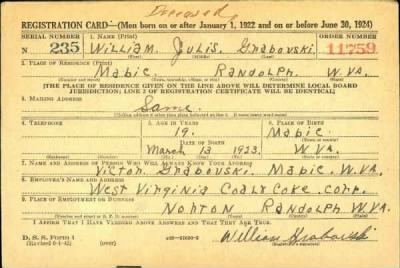 Deceased
REGISTRATION CARD—(Men born on or after January 1, 1922 and on or before June 30, 1924)
SERIAL NUMBER 1. NAME (Print) ORDER NUMBER
N 235 William Julis Grabovski 11759
(First) (Middle) (Last)
2. PLACE OF RESIDENCE (Print)
Mabie Randolph W.VA.
(Number and street) (Town, township, village, or city) (County) (State)
[THE PLACE OF RESIDENCE GIVEN ON THE LINE ABOVE WILL DETERMINE LOCAL BOARD
JURISDICTION; LINE 2 OF REGISTRATION CERTIFICATE WILL BE IDENTICAL]
3. MAILING ADDRESS
Same
4. TELEPHONE 5. AGE IN YEARS 6. PLACE OF BIRTH
19. Mabie
DATE OF BIRTH (Town or county)
March 13 1923. W.VA.
(Mo.) (Day) (Yr.) (State or country)
7. NAME AND ADDRESS OF PERSON WHO WILL ALWAYS KNOW YOUR ADDRESS
Victor Grabovski Mabie W.VA.
8. EMPLOYER'S NAME AND ADDRESS
West Virginia Coal & Coke Corp.
9. PLACE OF EMPLOYMENT OR BUSINESS
Norton Randolph W.VA.
(Number and street or R. F. D. number) (Town) (County) (State)
I AFFIRM THAT I HAVE VERIFIED ABOVE ANSWERS AND THAT THEY ARE TRUE.
D. S. S. Form 1
(Revised 6-1-42) (over)
William Grabovski
(Registrant's signature)